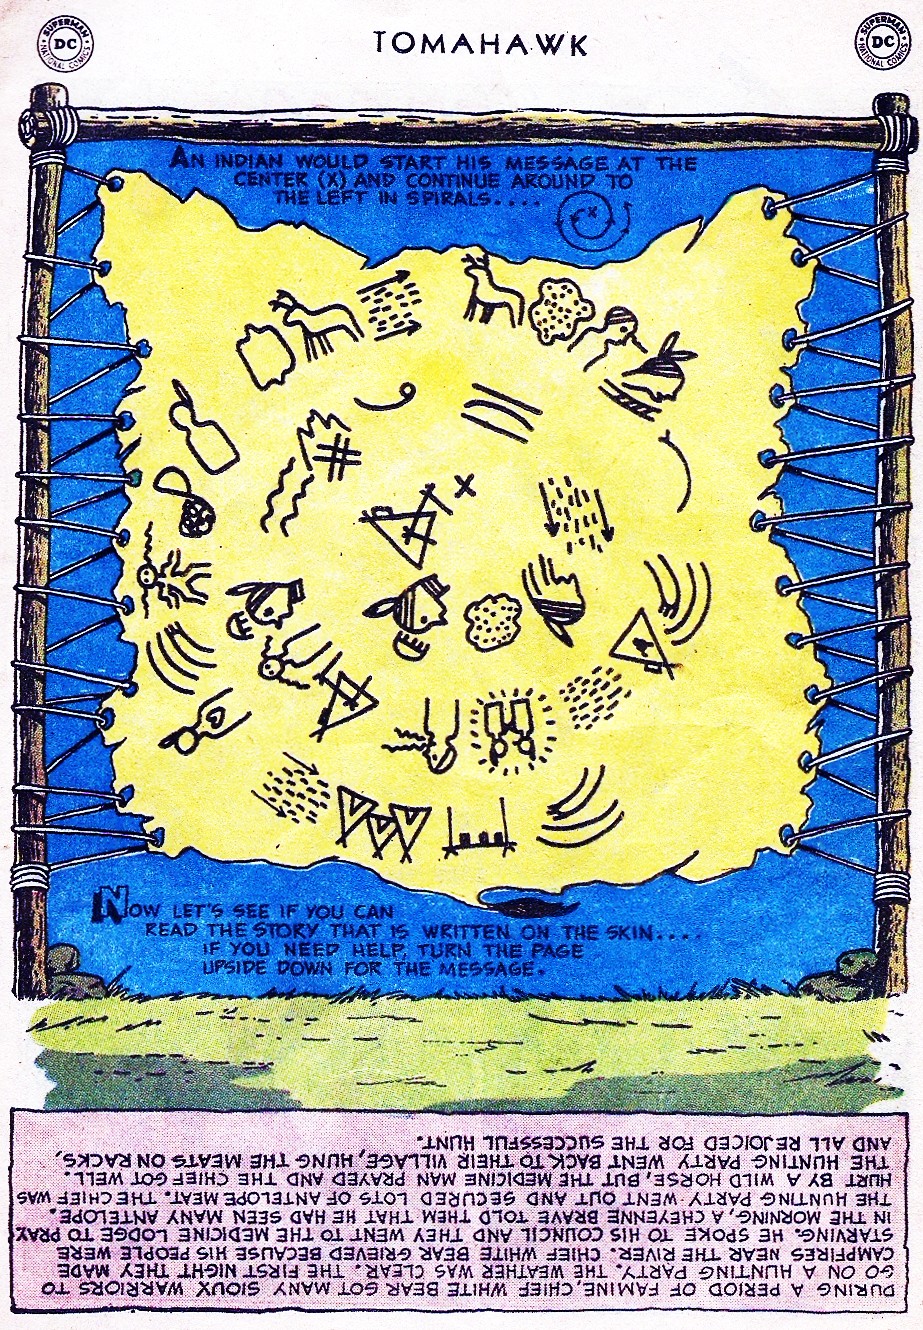 SUPERMAN
DC
NATIONAL COMICS
TOMAHAWK
SUPERMAN
DC
NATIONAL COMICS
AN INDIAN WOULD START HIS MESSAGE AT THE
CENTER (X) AND CONTINUE AROUND TO
THE LEFT IN SPIRALS....
X
X
NOW LET'S SEE IF YOU CAN
READ THE STORY THAT IS WRITTEN ON THE SKIN....
IF YOU NEED HELP, TURN THE PAGE
UPSIDE DOWN FOR THE MESSAGE.
DURING A PERIOD OF FAMINE, CHIEF WHITE BEAR GOT MANY SIOUX WARRIORS TO
GO ON A HUNTING PARTY. THE WEATHER WAS CLEAR. THE FIRST NIGHT THEY MADE
CAMPFIRES NEAR THE RIVER. CHIEF WHITE BEAR GRIEVED BECAUSE HIS PEOPLE WERE
STARVING. HE SPOKE TO HIS COUNCIL AND THEY WENT TO THE MEDICINE LODGE TO PRAY.
IN THE MORNING, A CHEYENNE BRAVE TOLD THEM THAT HE HAD SEEN MANY ANTELOPE.
THE HUNTING PARTY WENT OUT AND SECURED LOTS OF ANTELOPE MEAT. THE CHIEF WAS
HURT BY A WILD HORSE, BUT THE MEDICINE MAN PRAYED AND THE CHIEF GOT WELL.
THE HUNTING PARTY WENT BACK TO THEIR VILLAGE, HUNG THE MEATS ON RACKS,
AND ALL REJOICED FOR THE SUCCESSFUL HUNT.